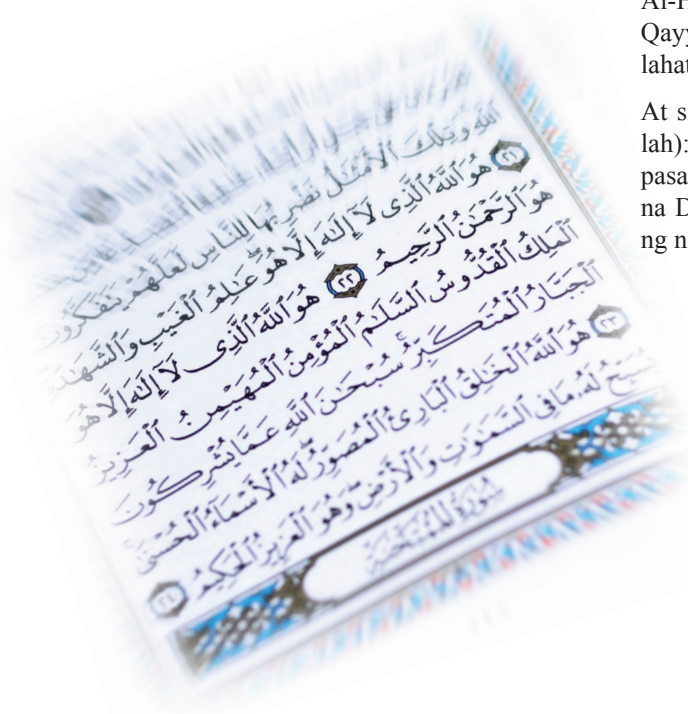 Al-H
Qayy
lahat
At s
lah):
pasa
na D
ng n
ٱللَّهِ وَتِلْكَ ٱلْأَمْثَٰلُ نَضْرِبُهَا لِلنَّاسِ لَعَلَّهُمْ يَتَفَكَّرُونَ
٢١ هُوَ ٱللَّهُ ٱلَّذِى لَآ إِلَٰهَ إِلَّا هُوَ ۖ عَٰلِمُ ٱلْغَيْبِ وَٱلشَّهَٰدَةِ
هُوَ ٱلرَّحْمَٰنُ ٱلرَّحِيمُ ٢٢ هُوَ ٱللَّهُ ٱلَّذِى لَآ إِلَٰهَ إِلَّا هُوَ
ٱلْمَلِكُ ٱلْقُدُّوسُ ٱلسَّلَٰمُ ٱلْمُؤْمِنُ ٱلْمُهَيْمِنُ ٱلْعَزِيزُ
ٱلْجَبَّارُ ٱلْمُتَكَبِّرُ ۚ سُبْحَٰنَ ٱللَّهِ عَمَّا يُشْرِكُونَ
٢٣ هُوَ ٱللَّهُ ٱلْخَٰلِقُ ٱلْبَارِئُ ٱلْمُصَوِّرُ ۖ لَهُ ٱلْأَسْمَآءُ ٱلْحُسْنَىٰ ۚ
يُسَبِّحُ لَهُۥ مَا فِى ٱلسَّمَٰوَٰتِ وَٱلْأَرْضِ ۖ وَهُوَ ٱلْعَزِيزُ ٱلْحَكِيمُ ٢٤
سُورَةُ ٱلْمُمْتَحَنَةِ